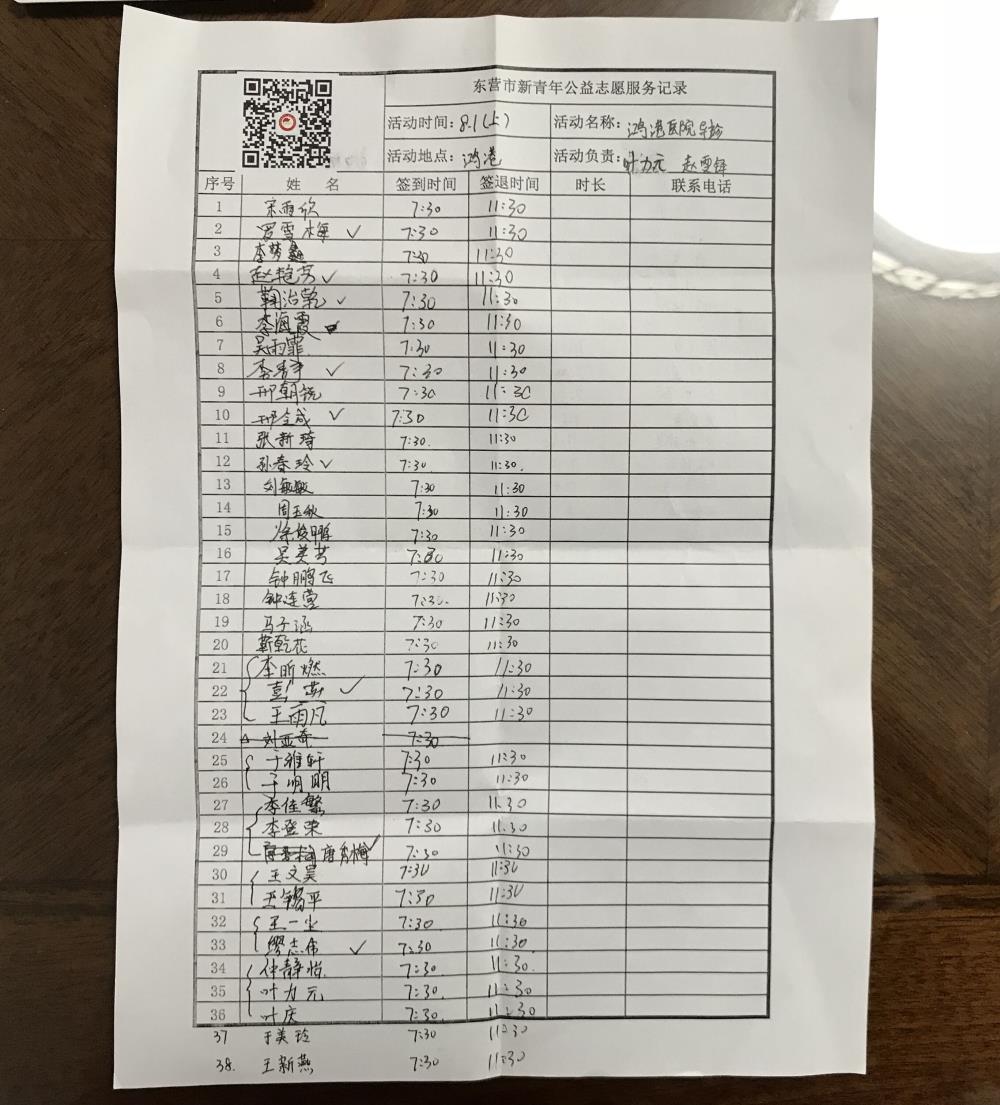 东营市新青年公益志愿服务记录
活动时间：8.1(上) 活动名称：鸿港医院导诊
活动地点：鸿港 活动负责：叶力元 赵雪锋
序号 姓 名 签到时间 签退时间 时长 联系电话
1 宋雨欣 7:30 11:30
2 罗雪梅 ✓ 7:30 11:30
3 李梦鑫 7:30 11:30
4 赵艳芳 ✓ 7:30 11:30
5 鞠治乾 ✓ 7:30 11:30
6 李海霞 7:30 11:30
7 吴雨霏 7:30 11:30
8 李青 ✓ 7:30 11:30
9 邢朝 7:30 11:30
10 邢全成 ✓ 7:30 11:30
11 张新琦 7:30. 11:30
12 孙春玲 ✓ 7:30. 11:30.
13 刘敏敏 7:30 11:30
14 周玉秋 7:30 11:30
15 徐俊鹏 7:30 11:30
16 吴美芳 7:30 11:30
17 钟鹏飞 7:30 11:30
18 钟连营 7:30. 11:30
19 马子涵 7:30 11:30
20 靳乾花 7:30 11:30
21 李昕燃 7:30 11:30
22 彭燕 ✓ 7:30 11:30
23 王雨凡 7:30 11:30
24 刘亚奇 7:30
25 于雅轩 7:30 11:30
26 于明明 7:30 11:30
27 李佳繁 7:30 11:30
28 李登荣 7:30 11:30
29 唐秀梅 ✓ 7:30 11:30
30 王文昊 7:30 11:30
31 王锡平 7:30 11:30
32 王一尘 7:30 11:30
33 缪志伟 ✓ 7:30 11:30
34 仲静怡 7:30 11:30
35 叶力元 7:30. 11:30
36 叶庆 7:30. 11:30
37 于美玲 7:30 11:30
38. 王新燕 7:30 11:30